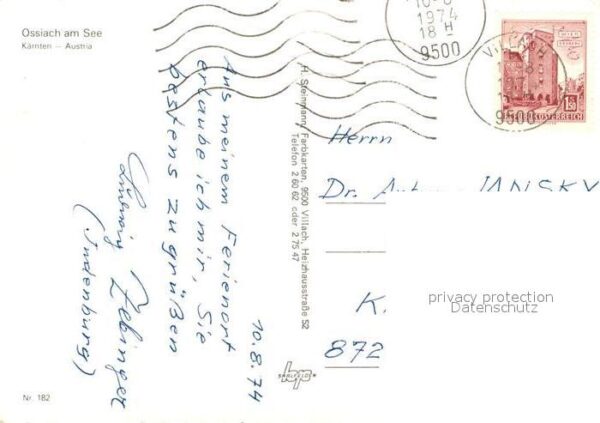 Ossiach am See
Kärnten — Austria
Aus meinem Ferienort
erlaube ich mir, Sie
bestens zu grüßen
10.8.74
(Judenburg)
Nr. 182
H. Steinmann, Farbkarten, 9500 Villach, Heizhausstraße 52
Telefon 2 60 62 oder 2 75 47
1974
18 H
9500
VILLACH
9500
ÖSTERREICH
Herrn
Dr.
JANISKY
K.
872
privacy protection
Datenschutz